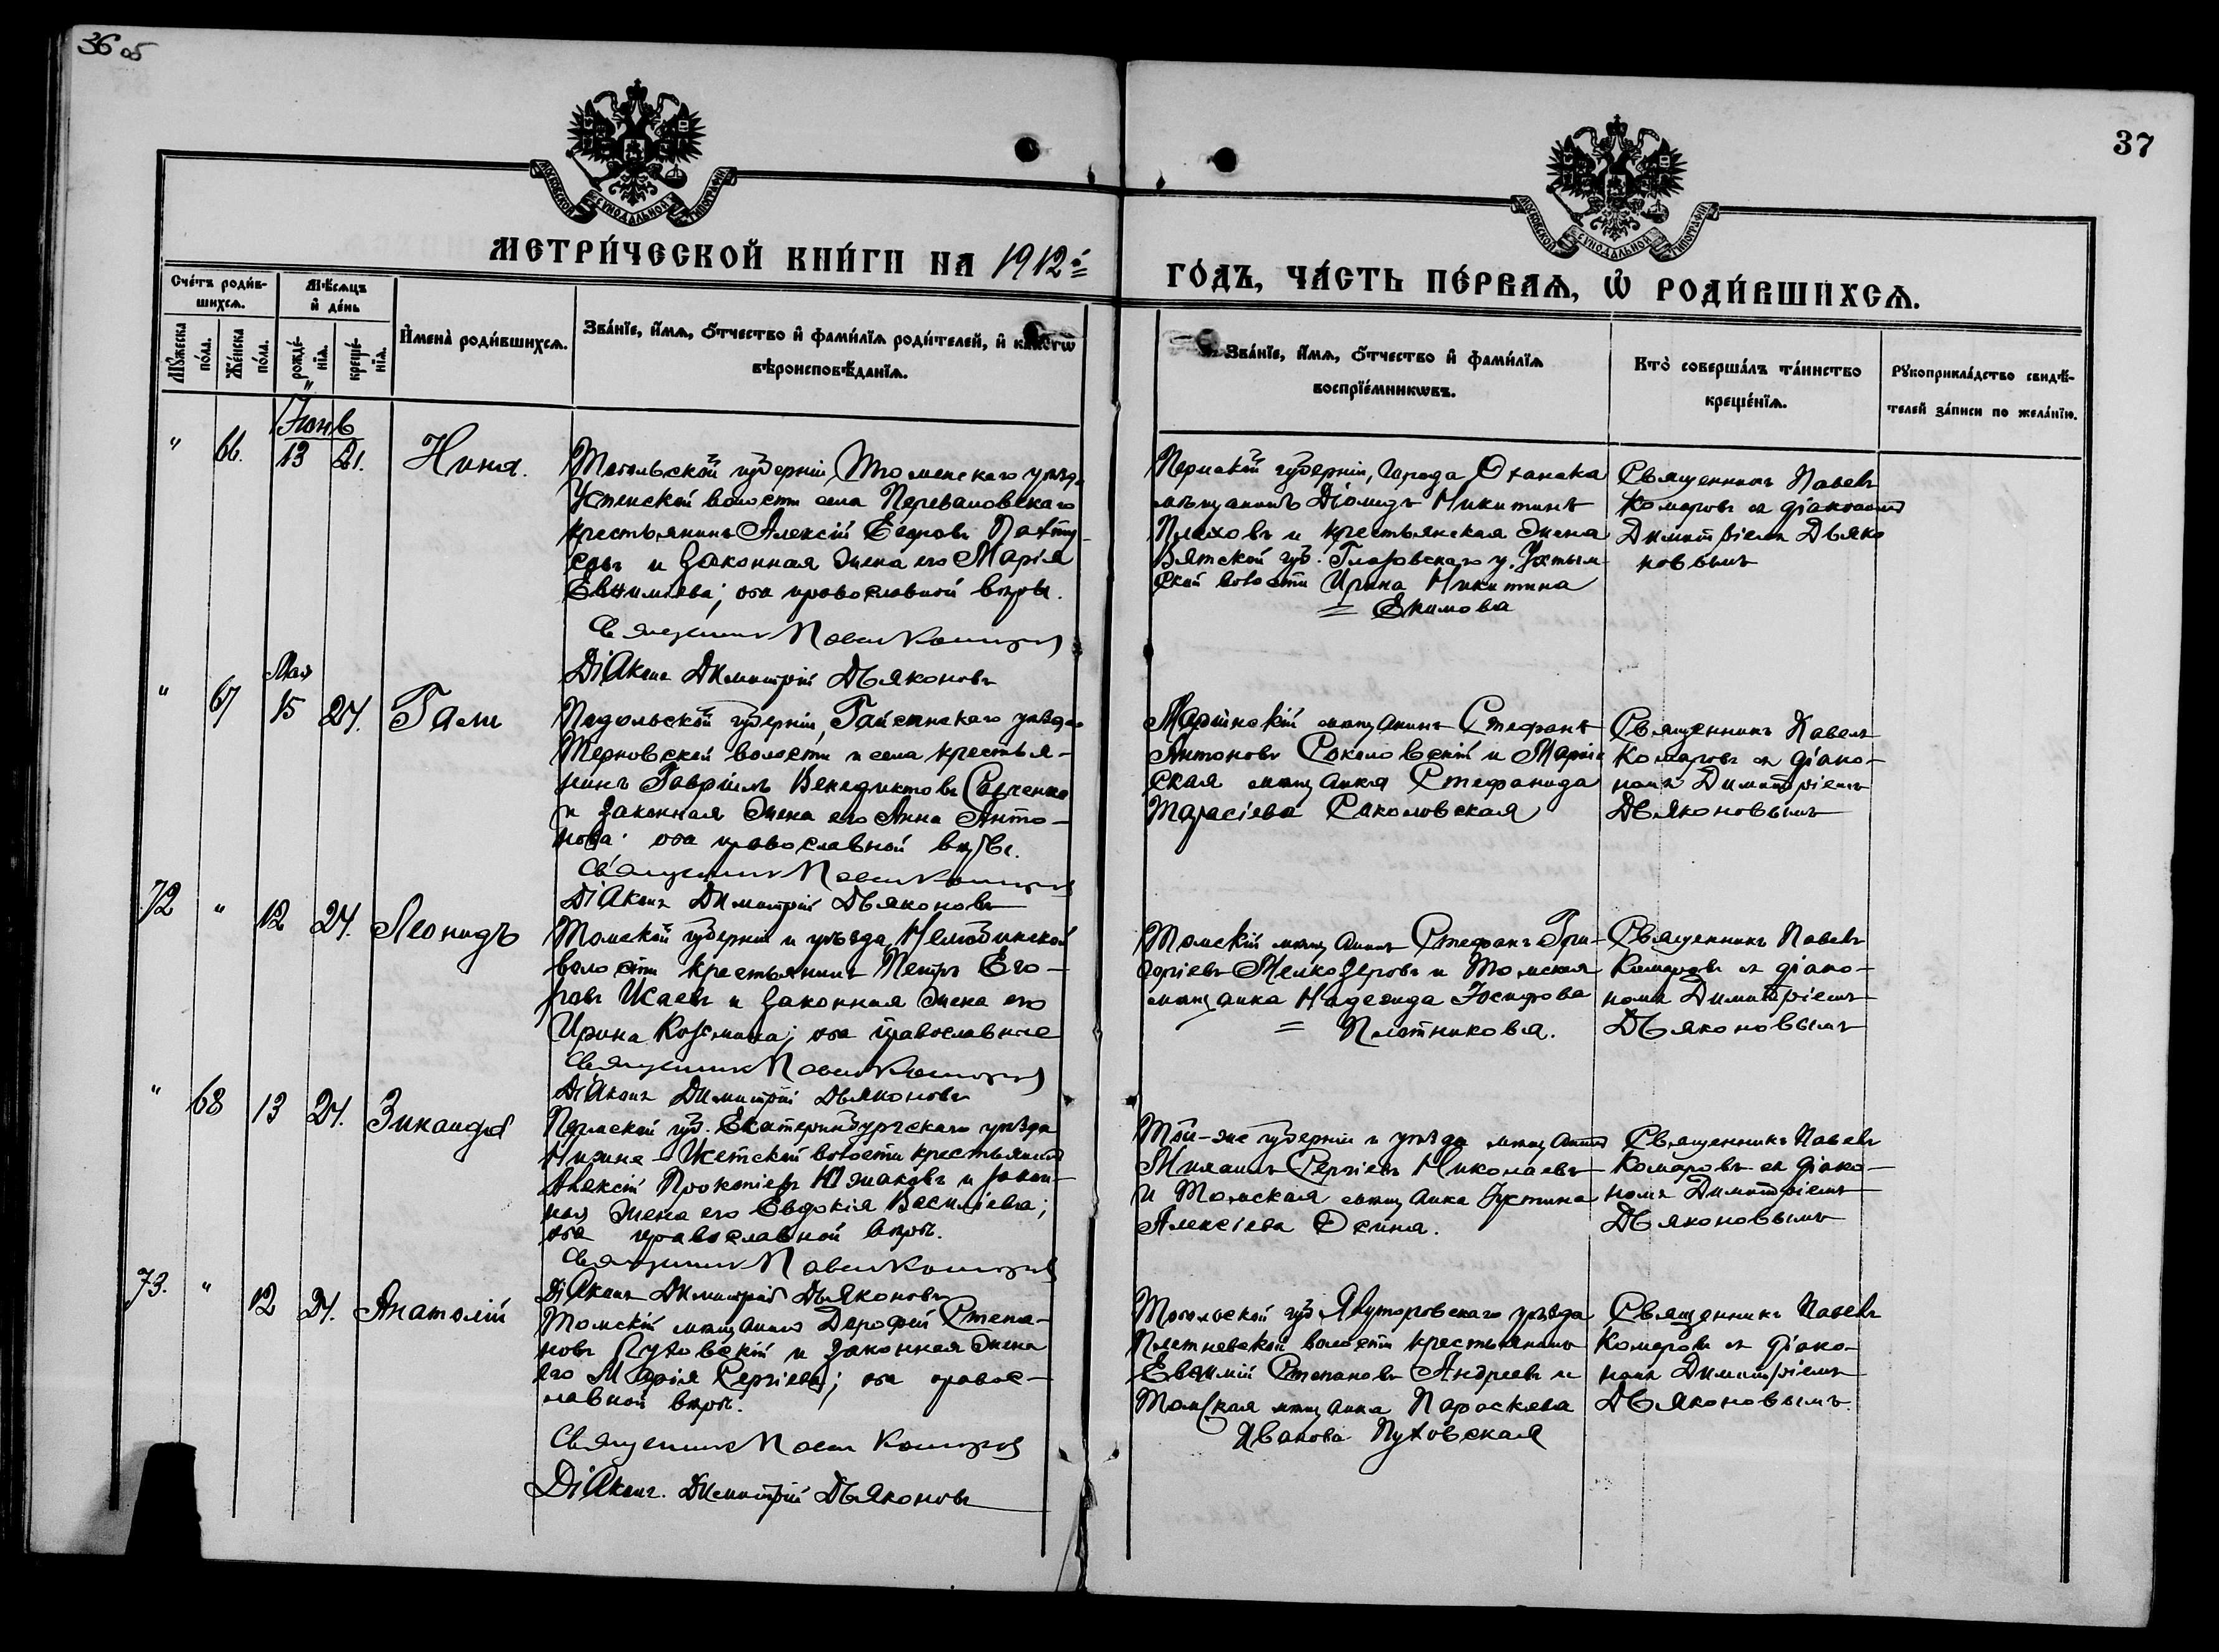 36 об
37
МОСКОВСКОЙ СѴНОДАЛЬНОЙ ТИПОГРАФІИ
МОСКОВСКОЙ СѴНОДАЛЬНОЙ ТИПОГРАФІИ
МЕТРИ́ЧЕСКОЙ КНИ́ГИ НА 1912й
ГО́ДЪ, ЧА́СТЬ ПЕ́РВАѦ, Ѡ҆ РОДИ́ВШИХСѦ.
Сче́тъ роди́в-
шихсѧ.
Мꙋ́жеска по́ла.
Же́нска по́ла.
Мѣ́сѧцъ
и҆ де́нь
рожде́-
нїѧ.
креще́-
нїѧ.
И҆мена̀ роди́вшихсѧ.
Зва́нїе, и҆́мѧ, ѻ҆́тчество и҆ фами́лїѧ роди́телей, и҆ како́гѡ
вѣроисповѣ́данїѧ.
Зва́нїе, и҆́мѧ, ѻ҆́тчество и҆ фами́лїѧ
воспрїе́мникѡвъ.
Кто̀ соверша́лъ та́инство
креще́нїѧ.
Рꙋкоприкла́дство свидѣ́-
телей за́писи по жела́нїю.
Іюнь
" 66. 13 21. Нина.
Тобольской губерніи, Тюменскаго уѣзд.
Успенской волости села Переваловскаго
крестьянинъ Алексій Егоровъ
и законная жена его Марія
Евѳиміева; оба православной вѣры.
Священникъ Павелъ Комаровъ
Діаконъ Димитрій Дьяконовъ
Пермской губерніи, города Оханска
мѣщанинъ Діомидъ Никитинъ
Плаховъ и крестьянская жена
Вятской губ. Глазовскаго у. Ухтым
ской волости Ирина Никитина
= Екимова
Священникъ Павелъ
Комаровъ съ діакономъ
Димитріемъ Дьяко
новымъ
Мая
" 67 15 24. Гали
Подольской губерніи, Гайсинскаго уѣзда
Терновской волости и села крестья-
нинъ Гавріилъ Венедиктовъ Савченко
и законная жена его Анна Анто-
нова; оба православной вѣры.
Священникъ Павелъ Комаровъ
Діаконъ Димитрій Дьяконовъ
Маріинскій мѣщанинъ Стефанъ
Антоновъ Соколовскій и Маріин
ская мѣщанка Стефанида
Тарасіева Соколовская
Священникъ Павелъ
Комаровъ съ діако-
номъ Димитріемъ
Дьяконовымъ
72 " 12 24. Леонидъ
Томской губерніи и уѣзда, Нелюбинской
волости крестьянинъ Петръ Его-
ровъ Исаевъ и законная жена его
Ирина Козьмина; оба православные
Священникъ Павелъ Комаровъ
Діаконъ Димитрій Дьяконовъ
Томскій мѣщанинъ Стефанъ Гри-
горіевъ Мелкозеровъ и Томская
мѣщанка Надежда Іосифова
= Плотникова.
Священникъ Павелъ
Комаровъ съ діако-
номъ Димитріемъ
Дьяконовымъ
" 68 13 24. Зинаида
Пермской губ. Екатеринбургскаго уѣзда
Нижне-Исетской волости крестьянинъ
Алексій Прокопіевъ Южаковъ и закон-
ная жена его Евдокія Василіева;
оба православной вѣры.
Священникъ Павелъ Комаровъ
Діаконъ Димитрій Дьяконовъ
Той-же губерніи и уѣзда мѣщанинъ
Михаилъ Сергіевъ Николаевъ
и Томская мѣщанка Іустина
Алексіева Осина.
Священникъ Павелъ
Комаровъ съ діако-
номъ Димитріемъ
Дьяконовымъ
73. " 12 24. Анатолій
Томскій мѣщанинъ Дорофей Степа-
новъ Путовскій и законная жена
его Марія Сергіева; оба правос-
лавной вѣры.
Священникъ Павелъ Комаровъ
Діаконъ. Димитрій Дьяконовъ
Тобольской губ Ялуторовскаго уѣзда
Плетневской волости крестьянинъ
Евѳимій Степановъ Андреевъ и
Томская мѣщанка Параскева
Иванова Путовская
Священникъ Павелъ
Комаровъ съ діако-
номъ Димитріемъ
Дьяконовымъ.